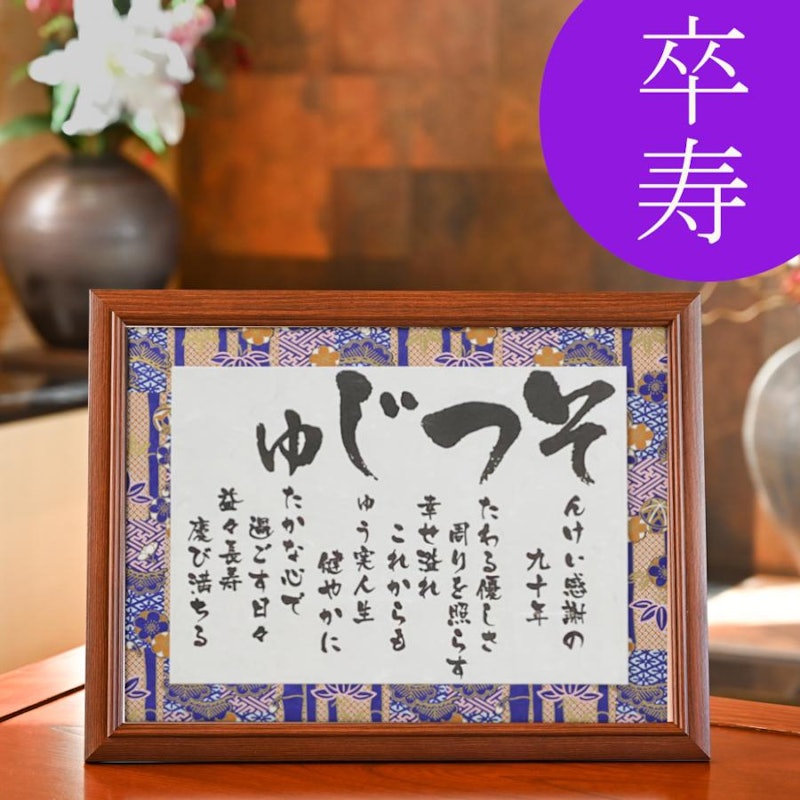 卒寿
そつじゅ
んけい感謝の
九十年
たわる優しさ
周りを照らす
幸せ溢れ
これからも
ゅう実人生
健やかに
たかな心で
過ごす日々
益々長寿
慶び満ちる